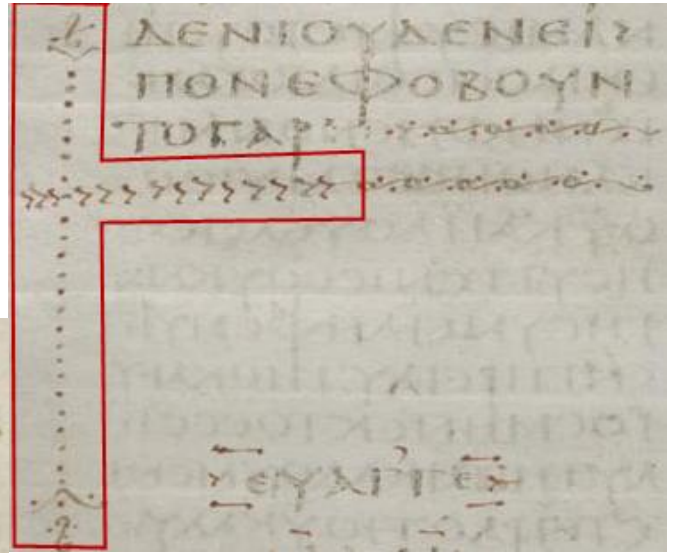 ΔΕΝΙΟΥΔΕΝΕΙ
ΠΟΝΕΦΟΒΟΥΝ
ΤΟΓΑΡ:
ΕΥΑΓΓΕ